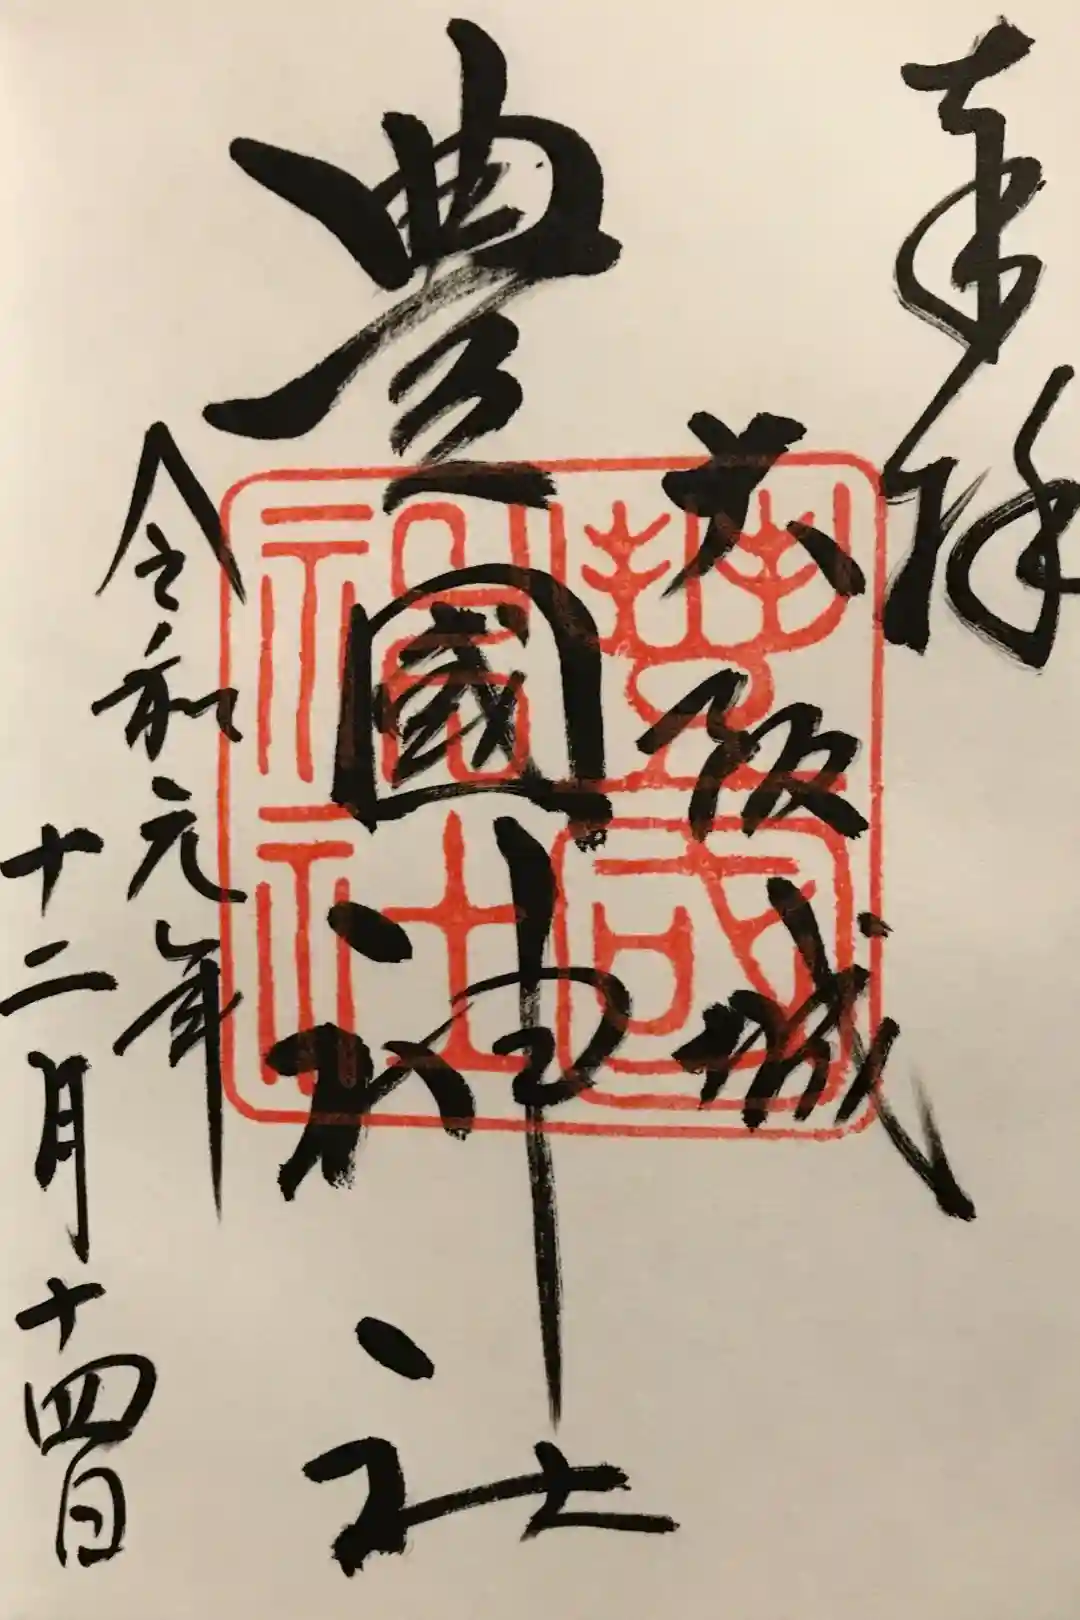 奉拝
大阪城
豊國神社
豊國神社
令和元年
十二月十四日